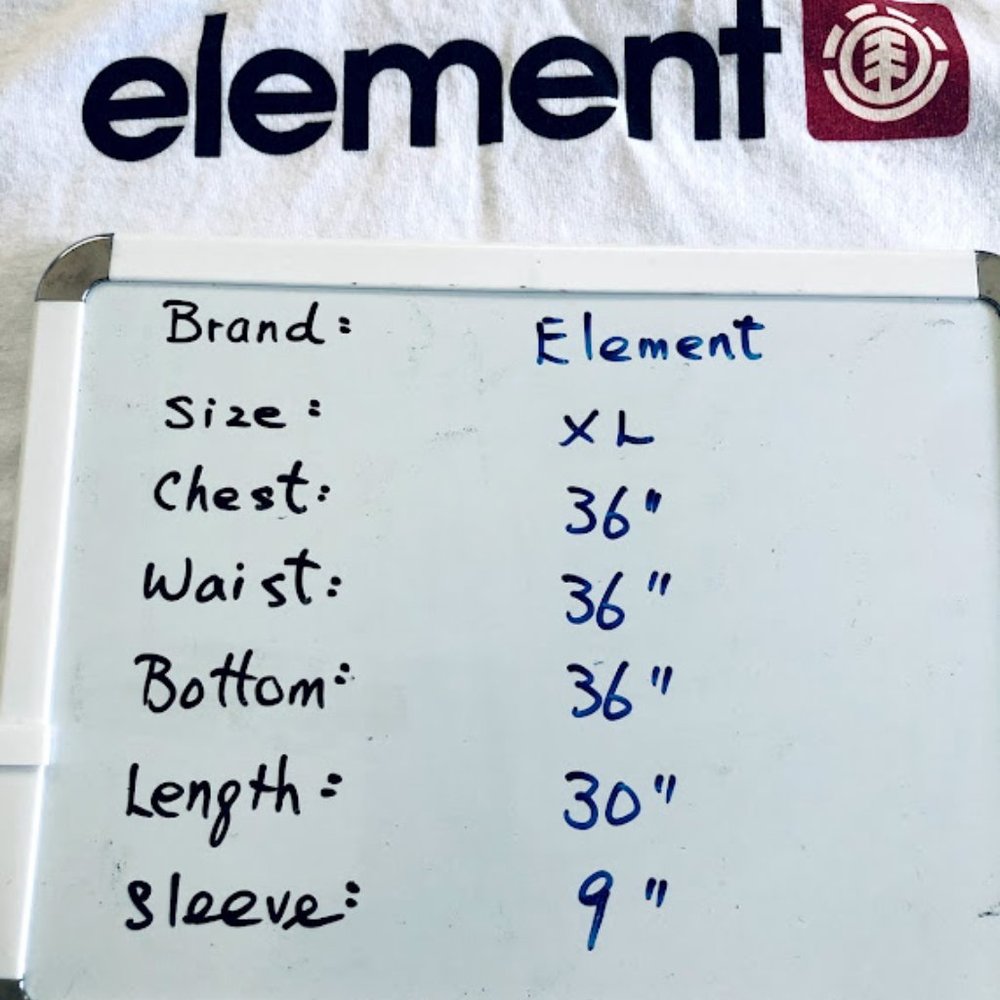 element
Brand: Element
Size: XL
Chest: 36"
Waist: 36"
Bottom: 36"
Length: 30"
Sleeve: 9"